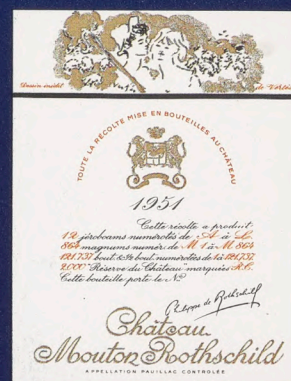 Dessin inédit de Vertès
TOUTE LA RÉCOLTE MISE EN BOUTEILLES AU CHÂTEAU
1951
Cette récolte a produit:
jéroboams numérotés de A à
864 magnums numér. de M 1 à M 864
bout. & 1/2 bout. numérotées de 1 à
2.000 "Réserve du Château" marquées R.C.
Cette bouteille porte le N°
Philippe de Rothschild
Château
Mouton Rothschild
APPELLATION PAUILLAC CONTROLÉE